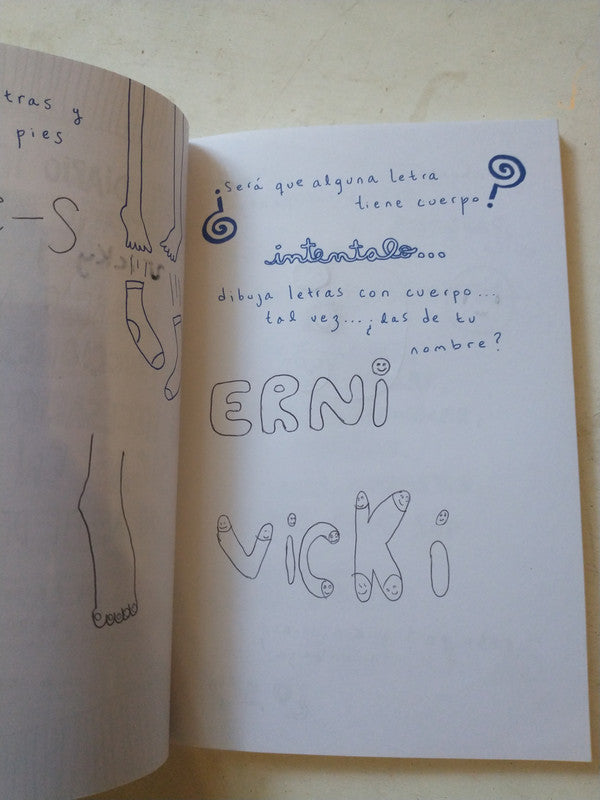 tras y
pies
-S
¿Será que alguna letra
tiene cuerpo?
intentalo...
dibuja letras con cuerpo...
tal vez... ¿las de tu
nombre?
ERNi
ViCKi